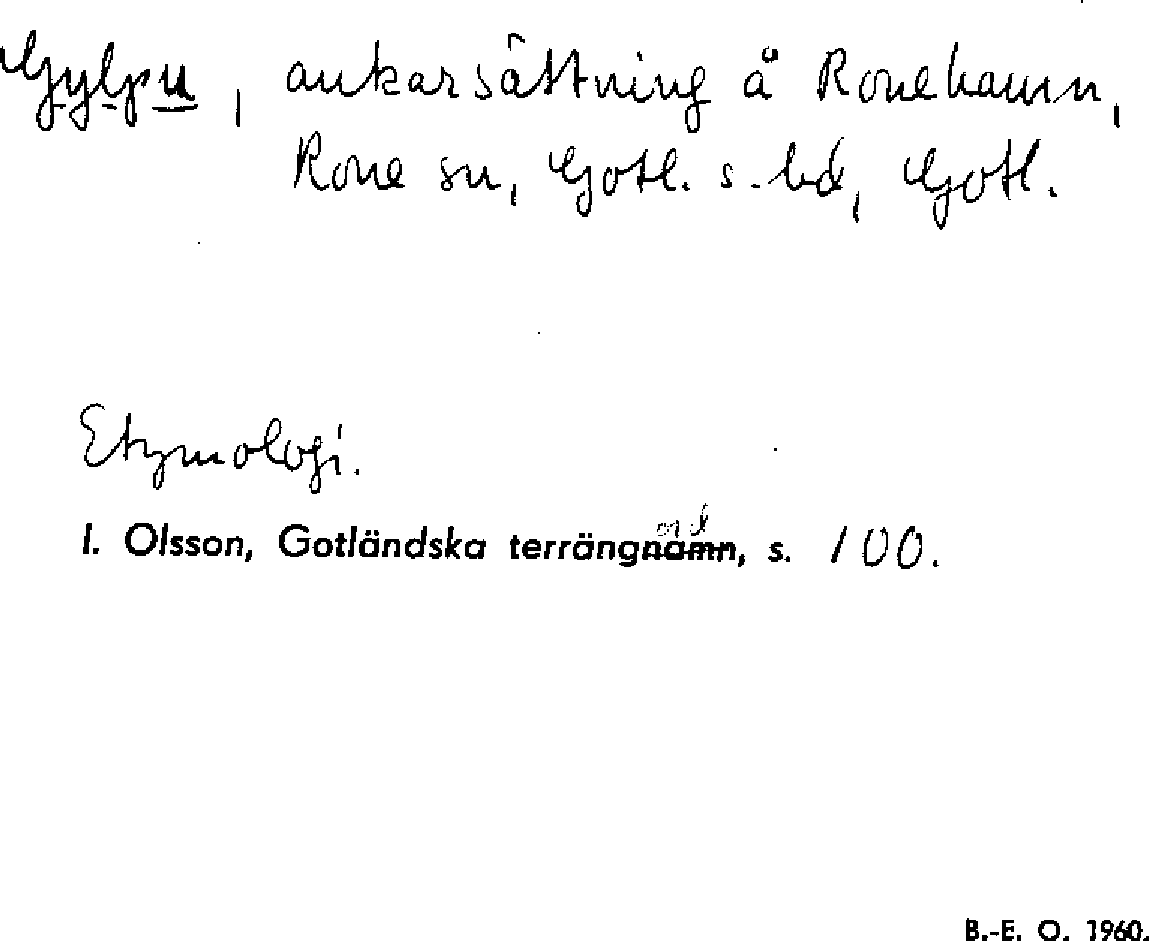 Gylpu, ankarsättning å Ronehamn,
Rone sn, Gotl. s. hd, Gotl.
Etymologi.
I. Olsson, Gotländska terrängnamn, s. 100.
ord
B.-E. O. 1960.